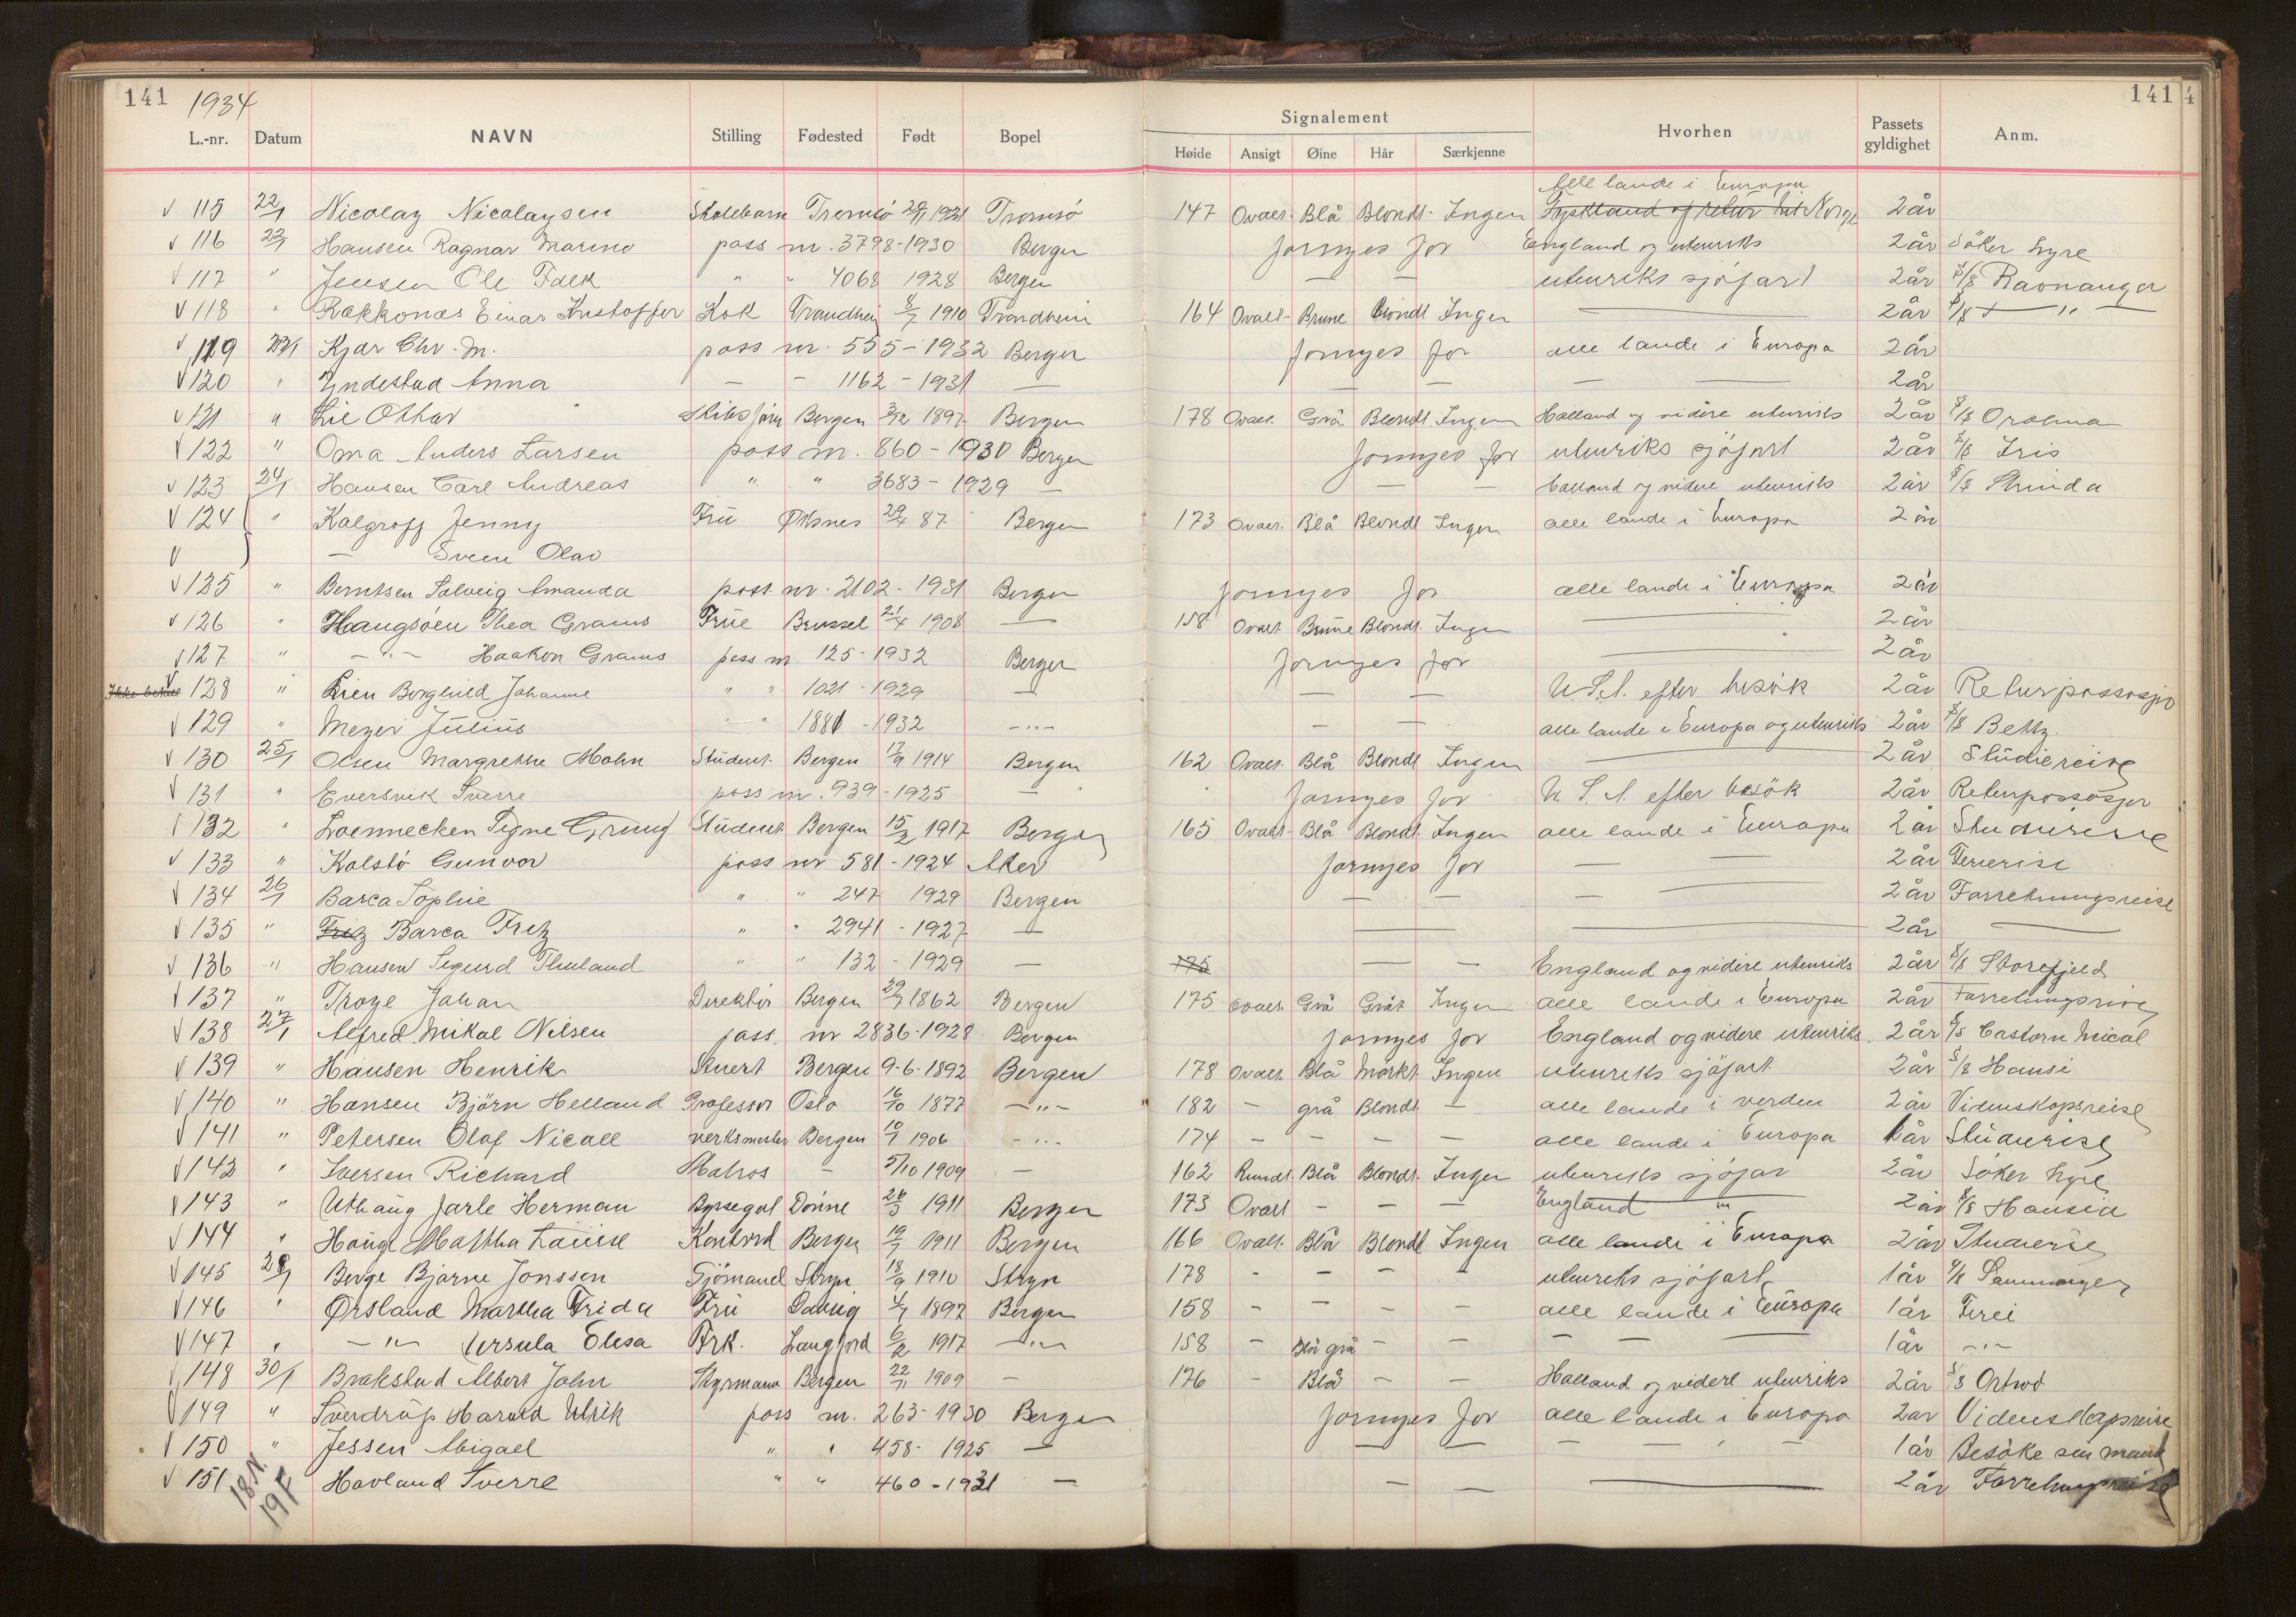 141 1934 141 4
Signalement
L.-nr. Datum NAVN Stilling Fødested Født Bopel Høide Ansigt Øine Hår Særkjenne Hvorhen Passets gyldighet Anm.
alle lande i Europa
115 22/1 Nicolay Nicolaysen Skolebarn Tromsö 1921 Tromsö 147 Ovalt. Blå Blondt. Ingen Tyskland og retur til Norge 2 år
116 22/1 Hansen Ragnar Marino pass nr. 3798-1930 Bergen fornyes for England og utenriks 2 år Söker hyre
117 " Jensen Ole Falck " " 4068 1928 Bergen — — utenriks sjöfart 2 år S/S Ravnanger
118 " Rakkonæs Einar Kristoffer Kok Trondheim 8/7 1910 Trondheim 164 Ovalt. Brune Blondt Ingen — 2 år S/S — " —
119 23/1 Kjær Chr. M. pass nr. 555-1932 Bergen fornyes for alle lande i Europa 2 år
120 " Yndestad Anna — - 1162 - 1931 — — — — — 2 år
121 " Lie Othar Skibsförer Bergen 3/12 1897 Bergen 178 Ovalt. Grå Blondt Ingen Holland og videre utenriks 2 år S/S
122 " Oma Anders Larsen pass nr. 860 - 1930 Bergen fornyes for utenriks sjöfart 2 år S/S Iris
123 24/1 Hansen Carl Andreas " " 3683 - 1929 — — — Holland og videre utenriks 2 år S/S Strinda
124 " Kalgroff Jenny Frü Øksnes 29/4 87 Bergen 173 Ovalt. Blå Blondt Ingen alle lande i Europa 2 år
— Svein Olav
125 " Berntsen Solveig Amanda pass nr. 2102 - 1931 Bergen fornyes for alle lande i Europa 2 år
126 " Haugsöen Thea Grams Früe Brussel 21/4 1908 — 158 Ovalt Brune Blondt. Ingen — 2 år
127 " — " — Haakon Grams pass nr. 125-1932 Bergen fornyes for — 2 år
128 " Lien Borghild Johanne " " 1021-1929 — — — U.S.A. efter besök 2 år Returpassasjer
129 " Meyer Julius — " 1881 - 1932 — " — — — alle lande i Europa og utenriks 2 år S/S Betty.
130 25/1 Olsen Margrethe Mohn Student. Bergen 17/9 1914 Bergen 162 Ovalt. Blå Blondt Ingen — 2 år Studiereise
131 " Eversvik Sverre pass nr. 939-1925 — fornyes for U.S.A. efter besök 2 år Returpassasjer
132 " Loennecken Signe Grung Student Bergen 15/2 1917 Bergen 165 Ovalt. Blå Blondt. Ingen alle lande i Europa 2 år Studiereise
133 " Kolstö Gunvor pass nr 581-1924 Aker fornyes for — — 2 år Feriereise
134 26/1 Barca Sophie " " 247 1929 Bergen — — — — 2 år Forretningsreise
135 " Fritz Barca Fritz " " 2941 - 1927 — — — 2 år —
136 " Hansen Sigurd Thuland " " 132 - 1929 — 175 — — England og videre utenriks 2 år S/S Storefjeld
137 " Troye Johan Direktör Bergen 29/7 1862 Bergen 175 Ovalt. Grå Gråt Ingen alle lande i Europa 2 år Forretningsreise
138 27/1 Alfred Mikal Nilsen pass. nr 2836-1928 Bergen fornyes for England og videre utenriks. 2 år S/S
139 " Hansen Henrik Stuert Bergen 9-6-1892 Bergen 178 Ovalt. Blå Mörkt Ingen utenriks sjöfart 2 år S/S Hansi
140 " Hansen Björn Helland Professor Oslo 16/10 1877 — " — 182 — grå Blondt — alle lande i verden 2 år Videnskapsreise
141 " Petersen Olaf Nicall verksmester Bergen 10/1 1906 — " — 174 — — — — alle lande i Europa 1 år Studiereise
142 " Iversen Richard Matros — 5/10 1909 — 162 Rundt. Blå Blondt. Ingen utenriks sjöfar 2 år Söker hyre
143 " Uthaug Jarle Herman Byssegut Dönne 26/3 1911 Bergen 173 Ovalt — — — England — " — 2 år S/S Hansia
144 " Hauge Martha Louise Kontord Bergen 19/7 1911 Bergen 166 Ovalt. Blå Blondt Ingen alle lande i Europa 2 år Studiereise
145 29/1 Berge Bjarne Jonssen Sjömand Stryn 18/9 1910 Stryn 178 - — — — utenriks sjöfart 1 år Samnanger
146 " Ørsland Martha Frida Frü 1897 Bergen 158 - — - - alle lande i Europa 1 år Ferei
147 " — " — Ursula Elisa Frk. Langfjord 6/2 1917 — " — 158 — Blå grå — — — — — 1 år — " —
148 30/1 Brakstad Albert John Styrmann Bergen 22/11 1909 — 176 — Blå — — Holland og videre utenriks 2 år S/S Ortwd
149 " Sverdrup Harald Ulrik pass nr. 263-1930 Bergen fornyes for alle lande i Europa 2 år Videnskapsreise
150 " Jessen Abigael " " 458-1925 — — — — — — 1 år Besöke sin mand
151 Havland Sverre " " 460 - 1931 — — — — 2 år Forretningsreise
18M
19F